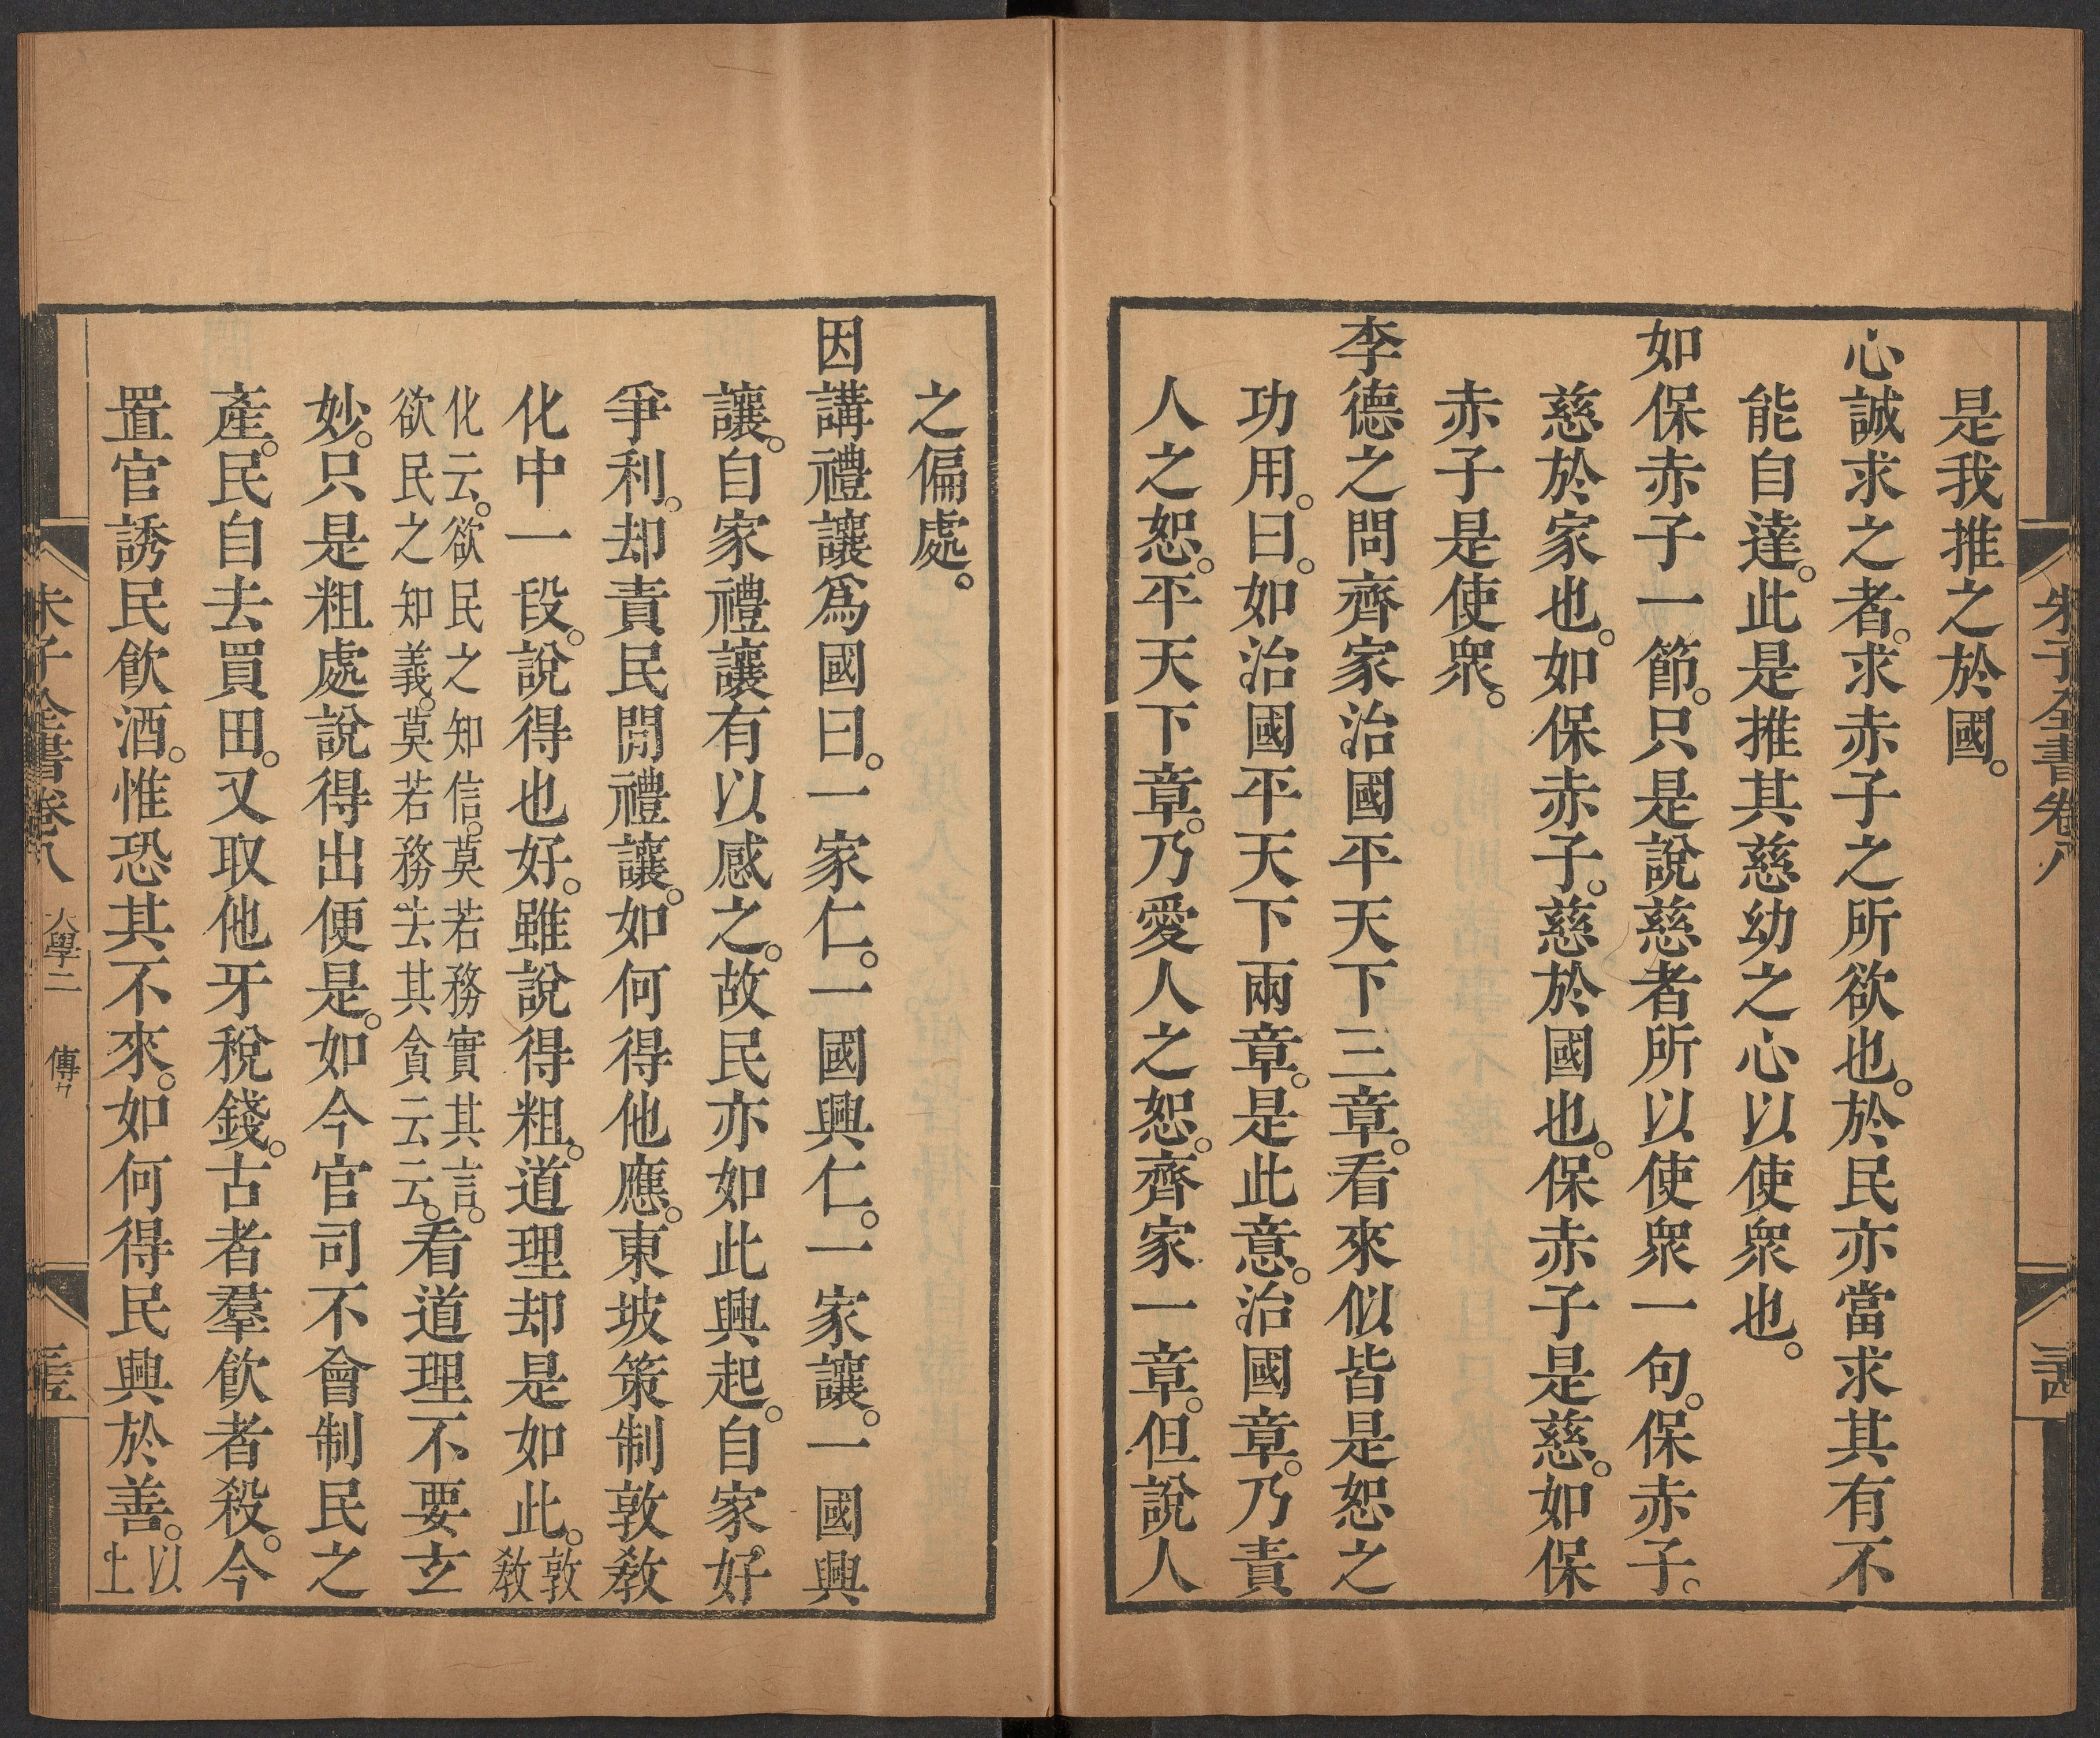 朱子全書卷八
是我推之於國。
心誠求之者。求赤子之所欲也。於民亦當求其有不
能自達。此是推其慈幼之心以使衆也。
如保赤子一節。只是說慈者所以使衆一句。保赤子。
慈於家也。如保赤子。慈於國也。保赤子是慈。如保
赤子是使衆。
李德之問齊家治國平天下三章。看來似皆是恕之
功用。曰。如治國平天下兩章。是此意。治國章。乃責
人之恕。平天下章。乃愛人之恕。齊家一章。但說人
之偏處。
因講禮讓爲國曰。一家仁。一國興仁。一家讓。一國興
讓。自家禮讓有以感之。故民亦如此興起。自家好
爭利。却責民閒禮讓。如何得他應。東坡策制敦敎
化中一段。說得也好。雖說得粗。道理却是如此。敦
敎
化云。欲民之知信。莫若務實其言。
欲民之知義。莫若務去其貪云云。看道理不要玄
妙。只是粗處說得出便是。如今官司不會制民之
產。民自去買田。又取他牙稅錢。古者羣飮者殺。今
置官誘民飮酒。惟恐其不來。如何得民興於善。以
上
朱子全書卷八 大學二 傳九